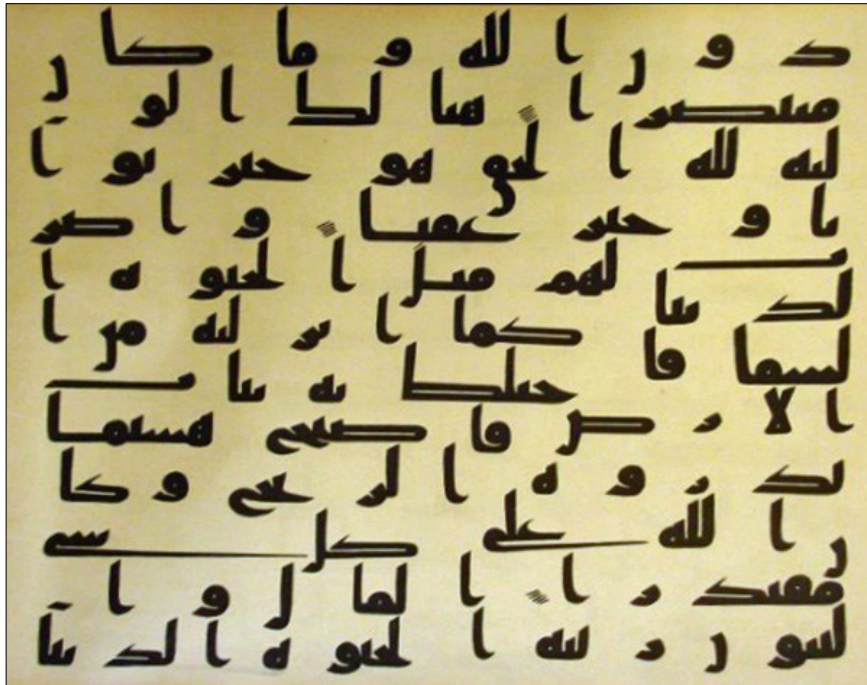 دون الله وما كان
منتصرا هنالك الو
ليه لله الحق هو خير ثوا
با وخير عقبا واضر
ب لهم مثل الحيوة ا
لدنيا كما انزلنه من ا
لسما فاختلط به نبات
الارض فاصبح هشيما
تذروه الريح وكا
ن الله على كل شي
مقتدرا المال وا
لبنون زينه الحيوه الدنيا